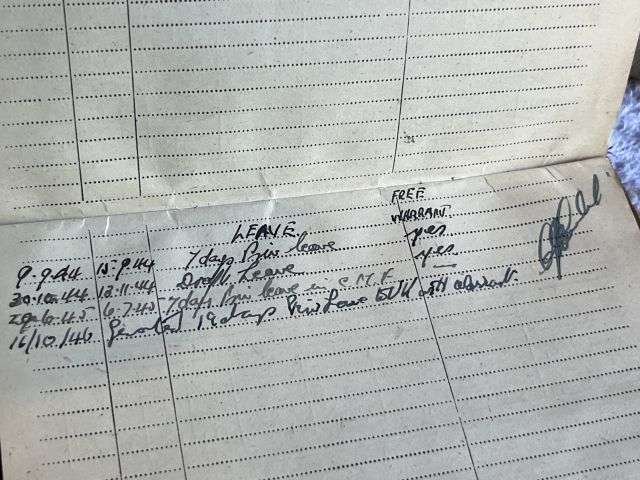 LEAVE. FREE WARRANT.
9.9.44 15.9.44 7 days Priv leave yes
30.10.44 12.11.44 Draft Leave yes
29.6.45 6.7.45 7 days Priv leave in C.M.F. —
16/10/46 Granted 19 days Priv Leave with